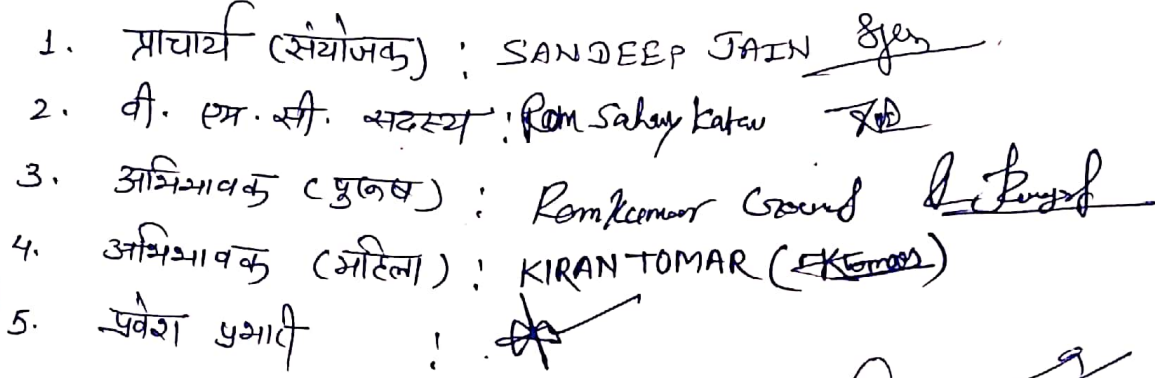 1. प्राचार्य (संयोजक) : SANDEEP JAIN
2. वी. एम. सी. सदस्य : Ram Sahay Katav
3. अभिभावक (पुरूष) : Ramkumar Gound
4. अभिभावक (महिला) : KIRAN TOMAR (
5. प्रवेश प्रभारी :